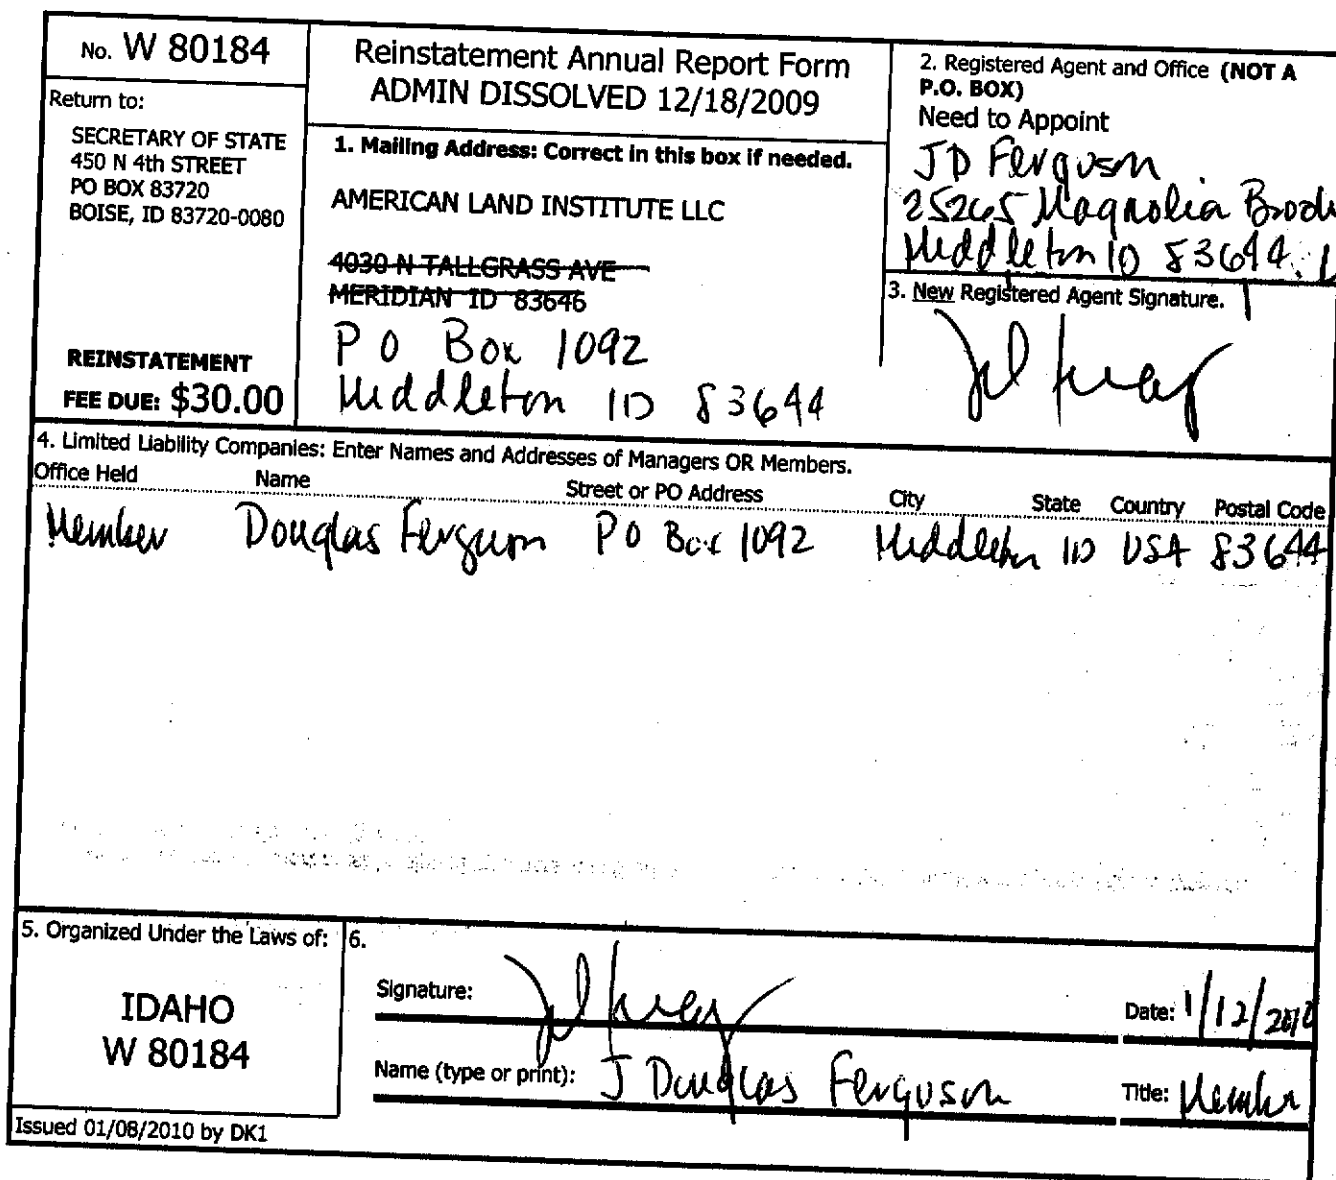 No. W 80184
Return to:
SECRETARY OF STATE
450 N 4th STREET
PO BOX 83720
BOISE, ID 83720-0080
REINSTATEMENT
FEE DUE: $30.00
Reinstatement Annual Report Form
ADMIN DISSOLVED 12/18/2009
1. Mailing Address: Correct in this box if needed.
AMERICAN LAND INSTITUTE LLC
4030 N TALLGRASS AVE
MERIDIAN ID 83646
PO Box 1092
Middleton ID 83644
2. Registered Agent and Office (NOT A
P.O. BOX)
Need to Appoint
JD Ferguson
25265 Magnolia
Middleton ID 83644
3. New Registered Agent Signature.
4. Limited Liability Companies: Enter Names and Addresses of Managers OR Members.
Office Held Name Street or PO Address City State Country Postal Code
Member Douglas Ferguson PO Box 1092 Middleton ID USA 83644
5. Organized Under the Laws of:
IDAHO
W 80184
6.
Signature:
Date: 1/12/2010
Name (type or print): J Douglas Ferguson
Title: Member
Issued 01/08/2010 by DK1